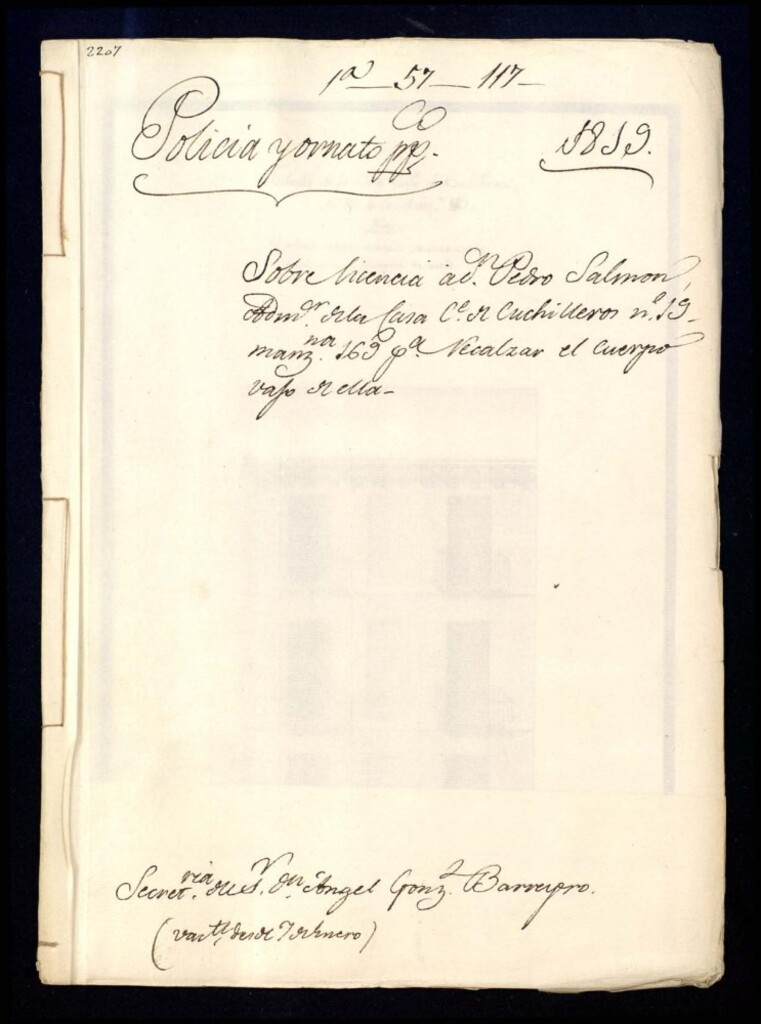 2207
1ª — 57 — 117 —
Policia y ornato pp.co
1819.
Sobre licencia a dn. Pedro Salmon,
Admor. de la Casa Ce. de Cuchilleros no. 19
manzna. 169 pa. Recalzar el cuerpo
vajo de ella —
Secretria. del Sr. dn. Angel Gonz. Barreyro.
( desde 7 de Enero )